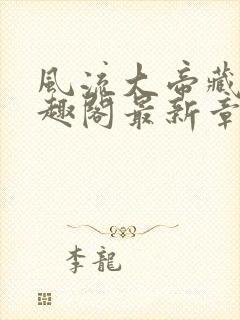 風流大帝藏
趣閣最新章
李龍